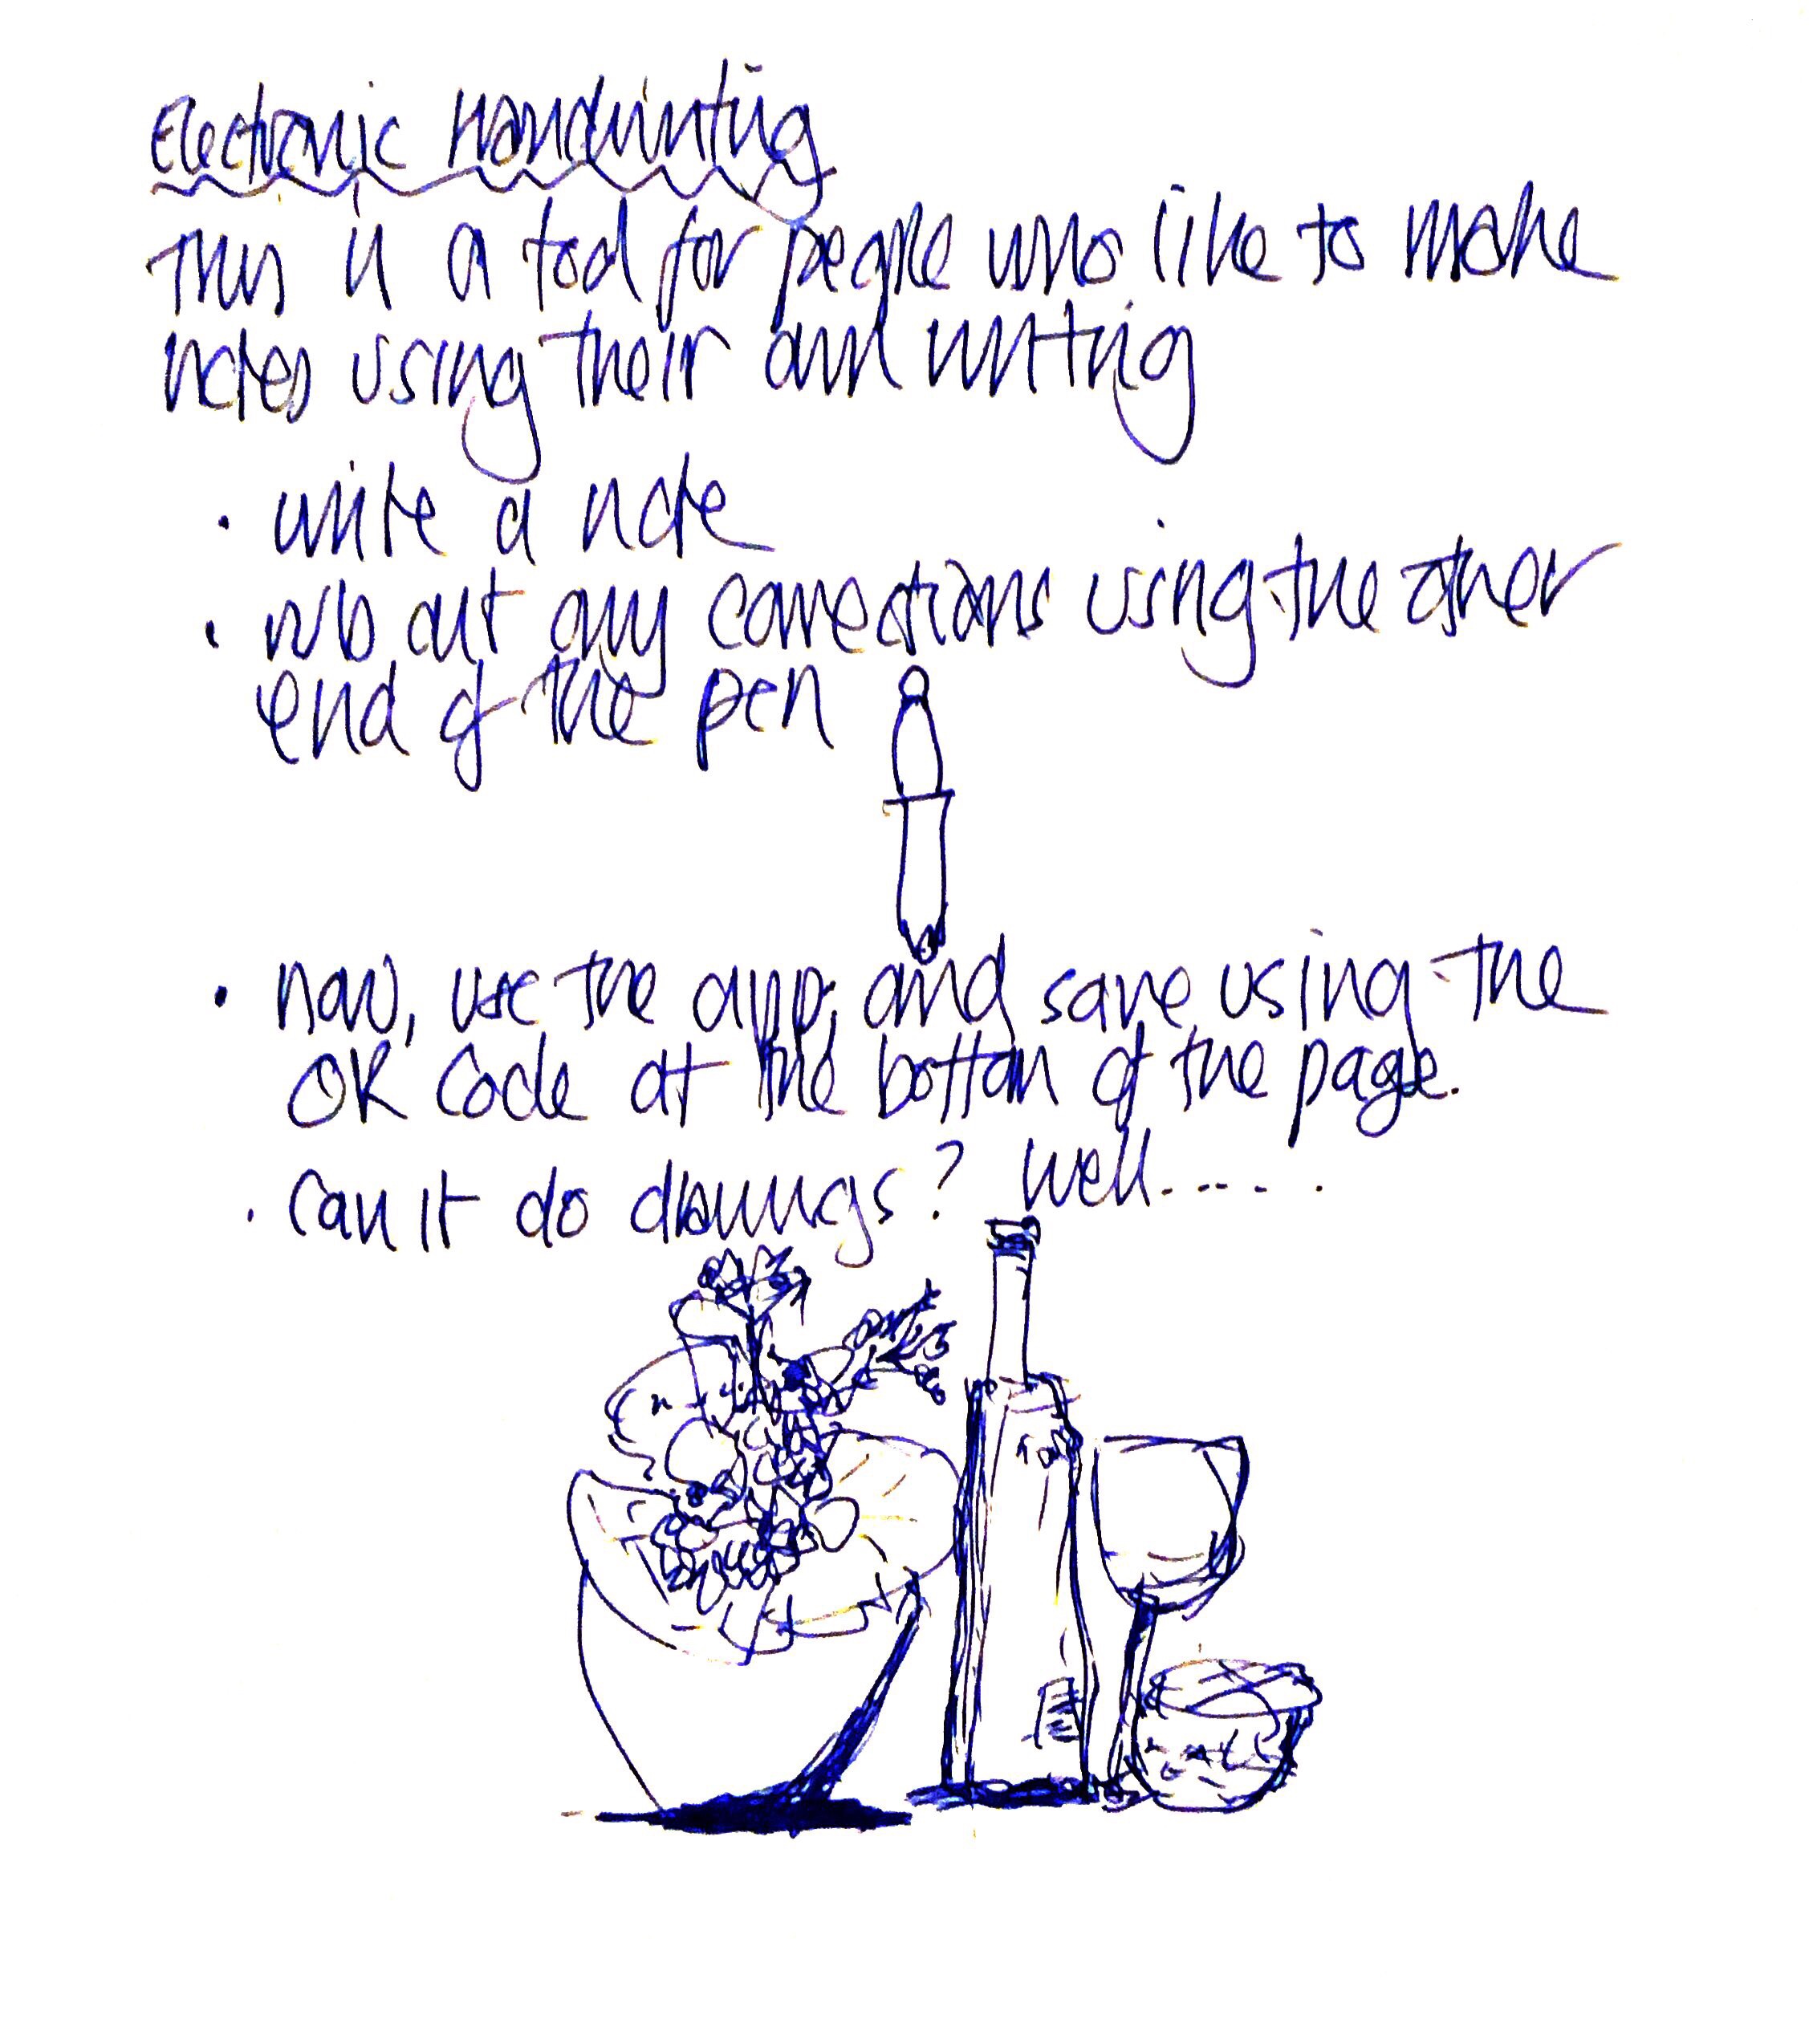 Electronic Handwriting
This is a tool for people who like to make
notes using their own writing
· write a note
· rub out any corrections using the other
end of the pen
· now, use the app, and save using the
QR code at the bottom of the page.
· Can it do drawings? Well......